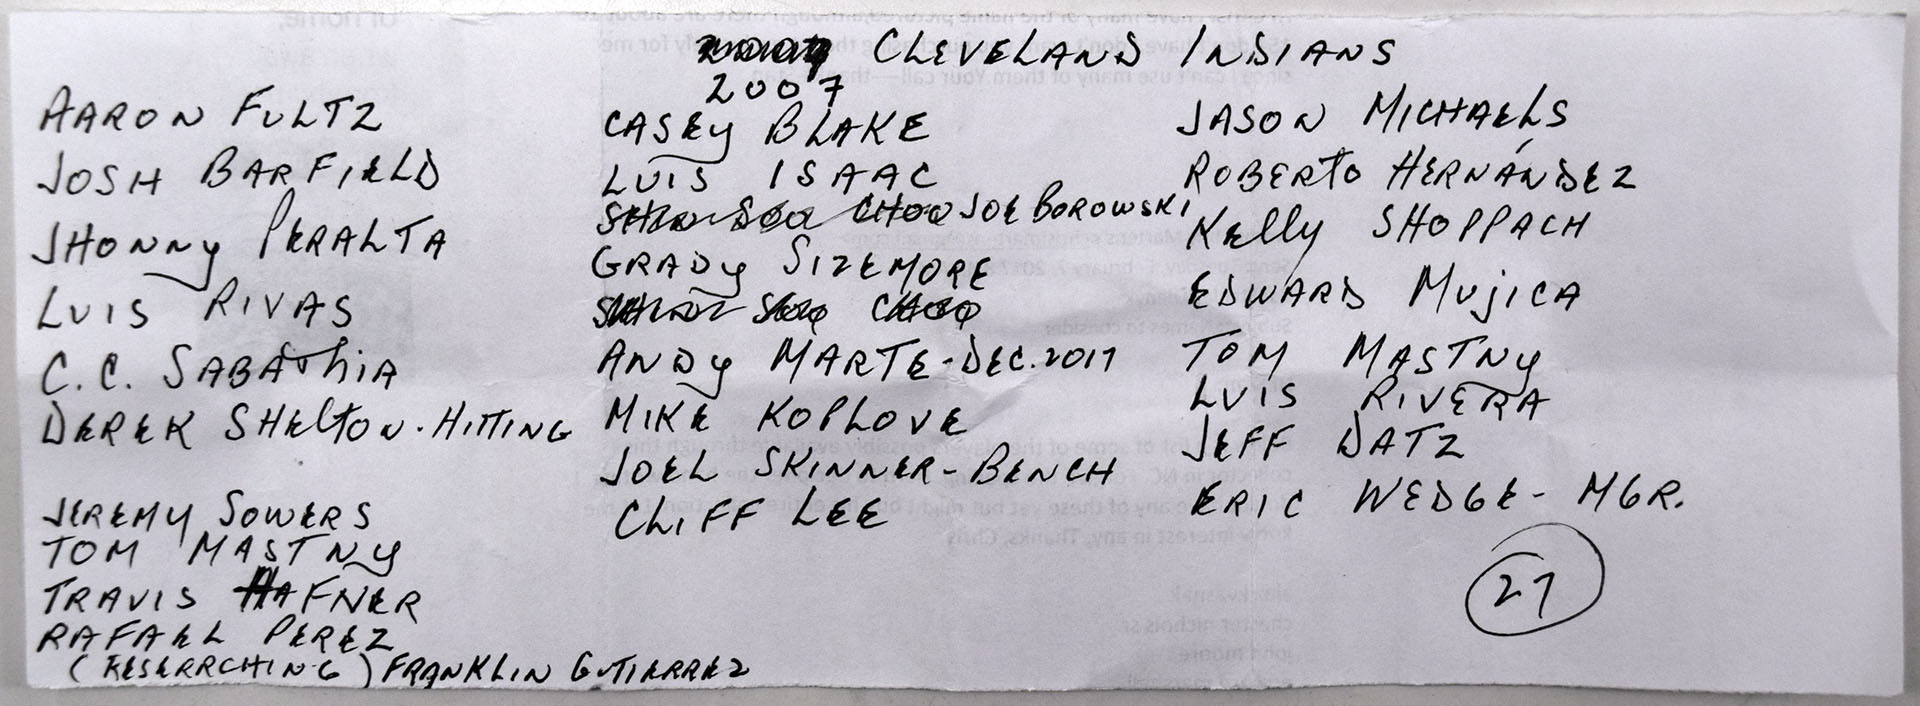 CLEVELAND INDIANS
2007
AARON FULTZ
JOSH BARFIELD
JHONNY PERALTA
LUIS RIVAS
C.C. SABATHIA
DEREK SHELTON-HITTING
JEREMY SOWERS
TOM MASTNY
TRAVIS HAFNER
RAFAEL PEREZ
(RESERRCHING) FRANKLIN GUTIERREZ
CASEY BLAKE
LUIS ISAAC
SHIN SOO CHOO JOE BOROWSKI
GRADY SIZEMORE
SHIN SOO CHOO
ANDY MARTE-DEC.2017
MIKE KOPLOVE
JOEL SKINNER-BENCH
CLIFF LEE
JASON MICHAELS
ROBERTO HERNÁNDEZ
KELLY SHOPPACH
EDWARD MUJICA
TOM MASTNY
LUIS RIVERA
JEFF DATZ
ERIC WEDGE - MGR.
27